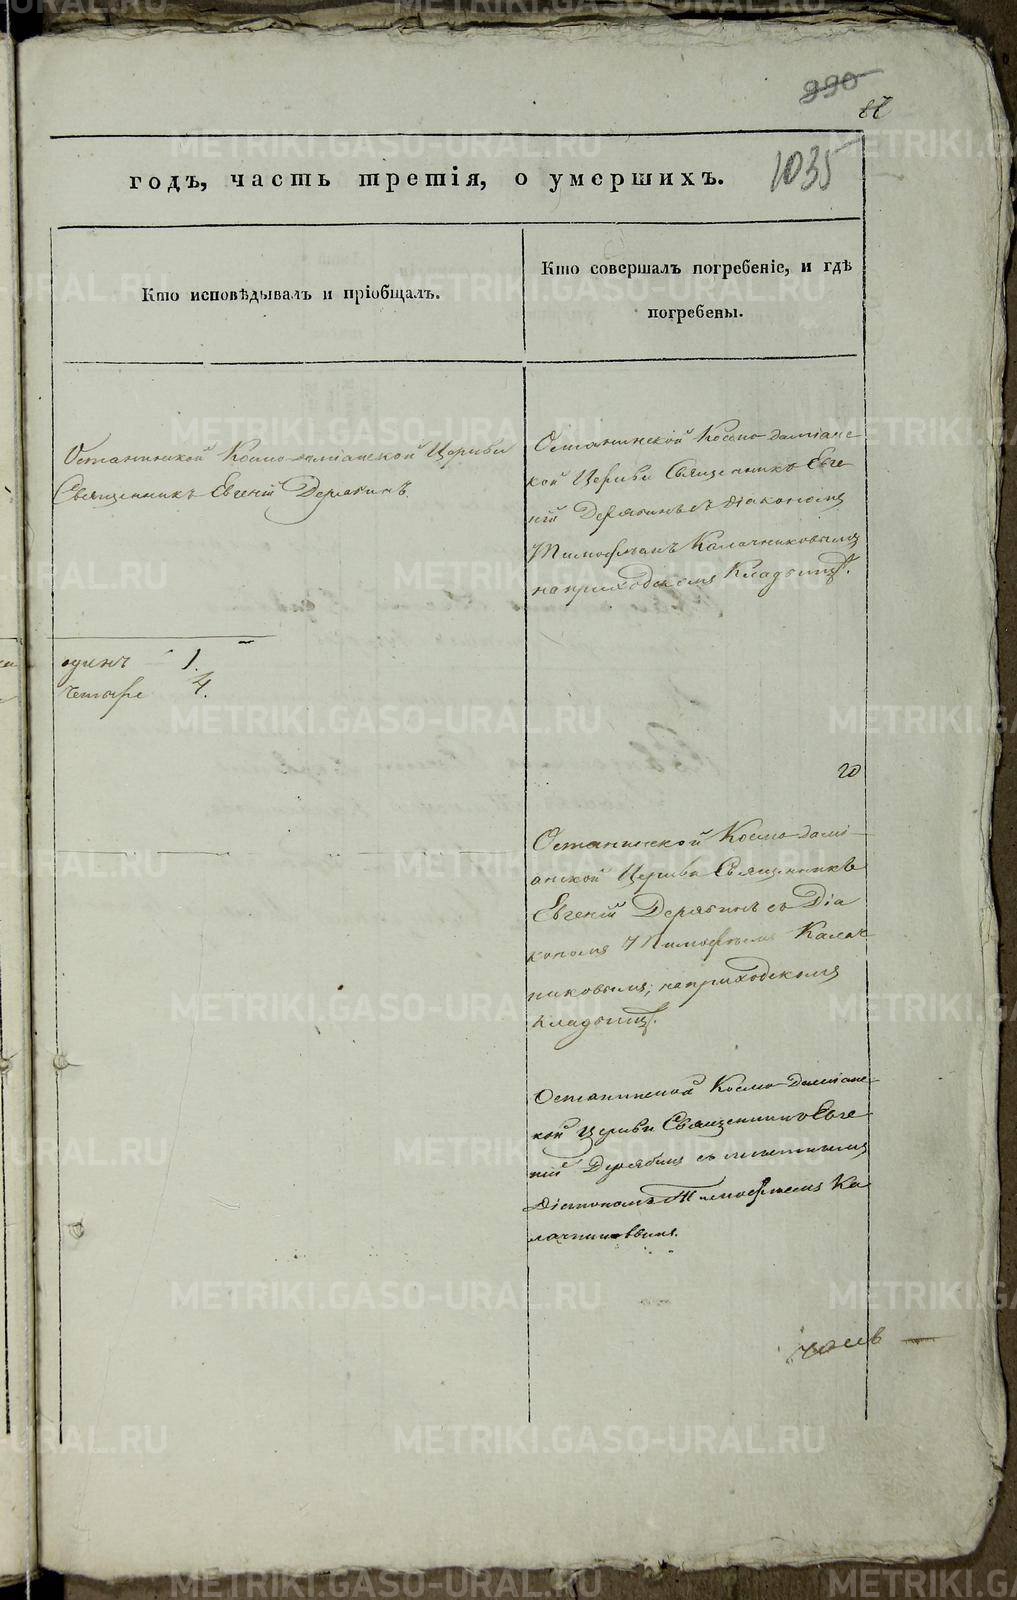 990
87
1035
годъ, часть третія, о умершихъ.
Кто исповѣдывалъ и пріобщалъ.
Кто совершалъ погребеніе, и гдѣ
погребены.
Останинской Космо-даміанской Церкви
Священникъ Евгеній Дерябинъ.
одинъ 1.
четыре 4.
Останинской Космо-даміанс
кой Церкви Священникъ Евге
ній Дерябинъ съ діакономъ
Тимофѣемъ Калачниковымъ
на приходскомъ Кладбищѣ.
го
Останинской Космо-дамі-
анской Церкви Священникъ
Евгеній Дерябинъ съ Діа
кономъ Тимофѣемъ Калач
никовымъ, на приходскомъ
кладбищѣ.
Останинской Космо-Даміанс-
кой Церкви Священникъ Евге
ній Дерябинъ съ
Діакономъ Тимофѣемъ Ка
лачниковымъ.
METRIKI.GASO-URAL.RU